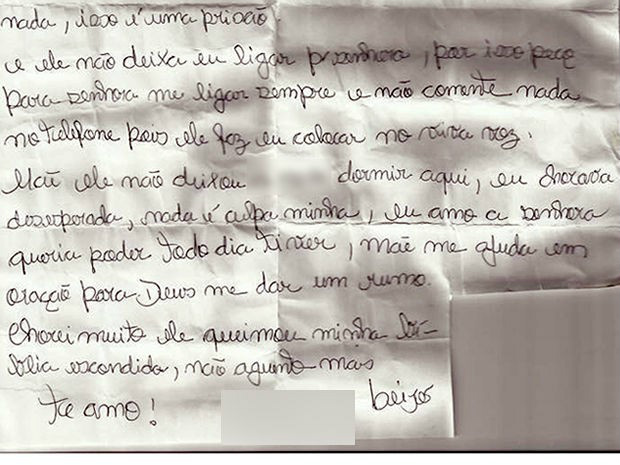 nada, isso é uma prisão.
e ele não deixa eu ligar prsenhora, por isso peço
para senhora me ligar sempre e não comente nada
no telefone pois ele faz eu colocar no viva voz.
Mãe ele não deixou dormir aqui, eu chorava
desesperada, nada é culpa minha, eu amo a senhora
queria poder todo dia ti ver, mãe me ajuda em
oração para Deus me dar um rumo.
Chorei muito ele queimou minha bí-
blia escondida, não aguento mais
te amo! beijos